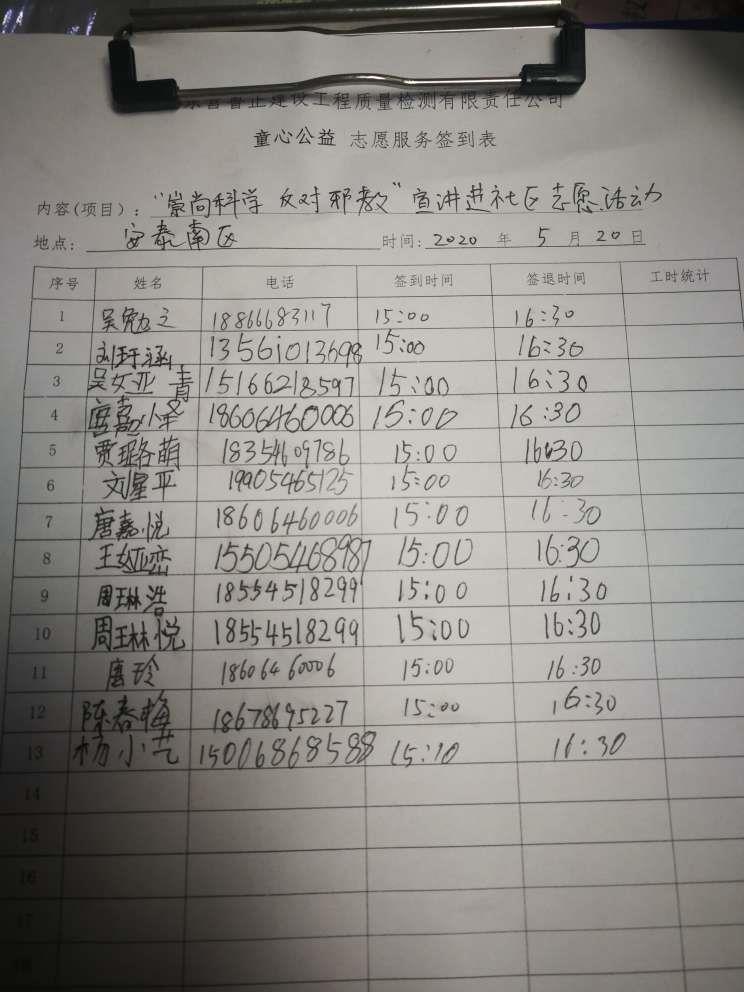 建设工程质量检测有限责任公司
童心公益 志愿服务签到表
内容(项目): "崇尚科学 反对邪教"宣讲进社区志愿活动
地点: 安泰南区 时间: 2020 年 5 月 20 日
序号 姓名 电话 签到时间 签退时间 工时统计
1 吴勉之 18866683117 15:00 16:30
2 刘玗涵 13561013698 15:00 16:30
3 吴女亚青 15166218597 15:00 16:30
4 唐嘉小泽 18606460006 15:00 16:30
5 贾璐萌 18354609786 15:00 16:30
6 刘星平 19905465125 15:00 16:30
7 唐嘉悦 18606460006 15:00 16:30
8 王娅峦 15505468987 15:00 16:30
9 周琳浩 18554518299 15:00 16:30
10 周琳悦 18554518299 15:00 16:30
11 唐玲 18606460006 15:00 16:30
12 陈春梅 18678695227 15:00 16:30
13 杨小芸 15006868588 15:10 16:30
14
15
16
17
18